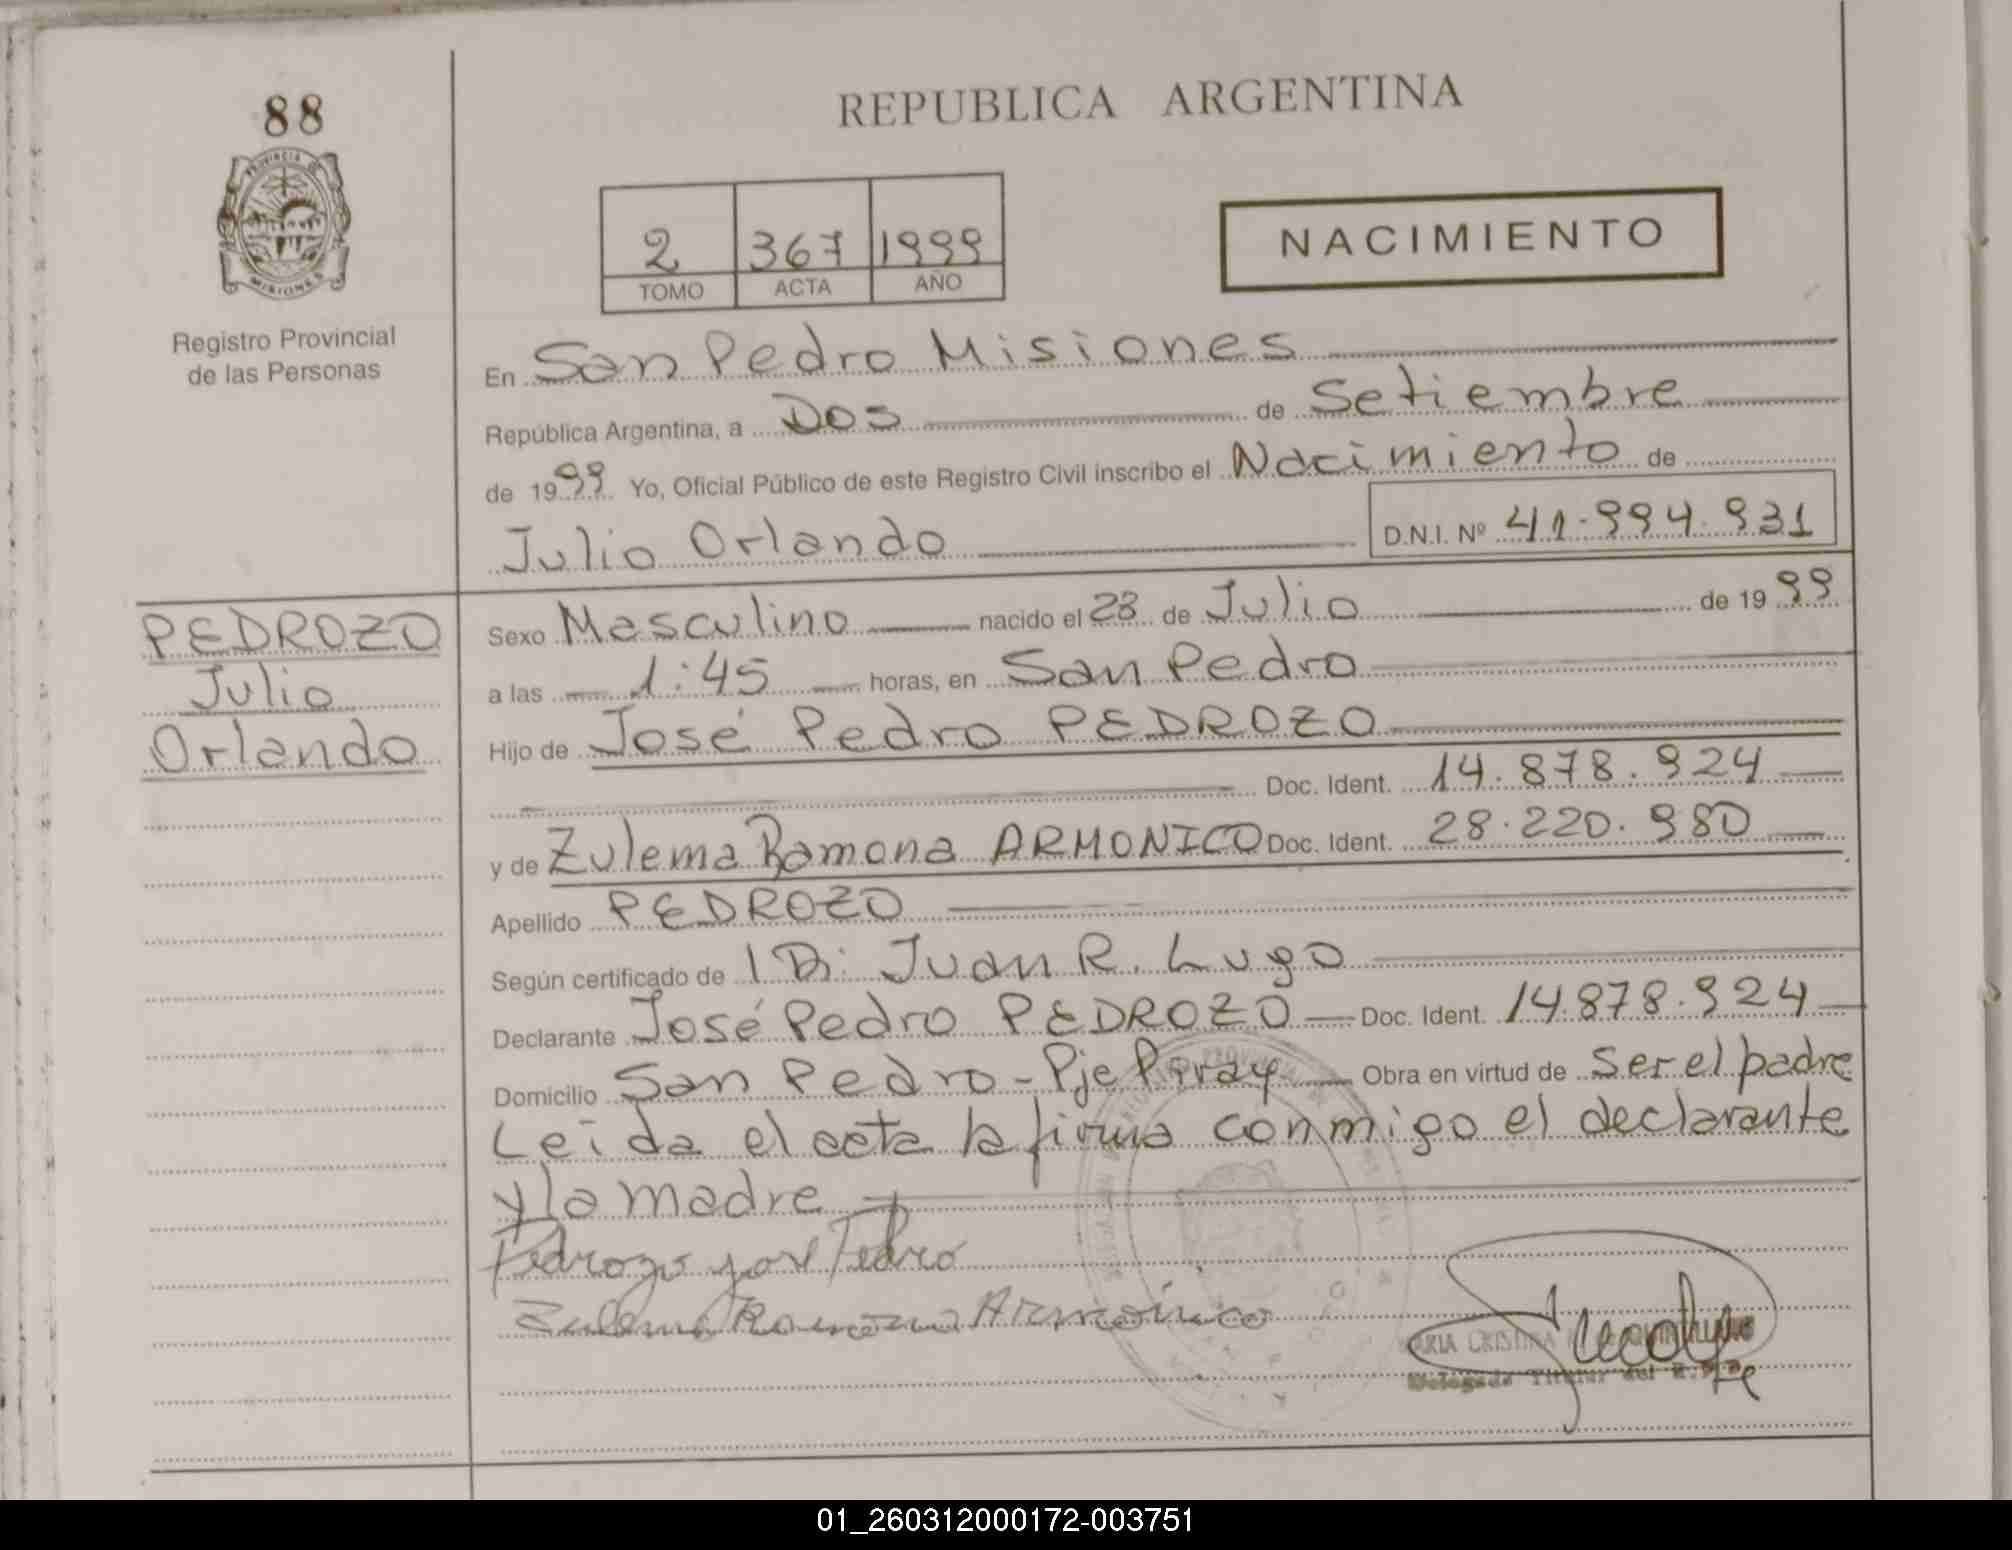 88
PROVINCIA DE
MISIONES
Registro Provincial
de las Personas
REPUBLICA ARGENTINA
2 367 1999
TOMO ACTA AÑO
NACIMIENTO
En San Pedro Misiones
República Argentina, a Dos de Setiembre
de 1999 Yo, Oficial Público de este Registro Civil inscribo el Nacimiento de
Julio Orlando D.N.I. Nº 41.994.931
PEDROZO
Julio
Orlando
Sexo Masculino nacido el 28 de Julio de 1999
a las 1:45 horas, en San Pedro
Hijo de José Pedro PEDROZO
Doc. Ident. 14.878.924
y de Zulema Ramona ARMONICO Doc. Ident. 28.220.980
Apellido PEDROZO
Según certificado de Juan R. Lugo
Declarante José Pedro PEDROZO Doc. Ident. 14.878.924
Domicilio San Pedro - Pje Piray Obra en virtud de Ser el padre
Leida el acta la firma conmigo el declarante
y la madre
Pedrozo José Pedro
Zulema Ramona Armónico
MARIA CRISTINA
Delegada Titular del
01_260312000172-003751